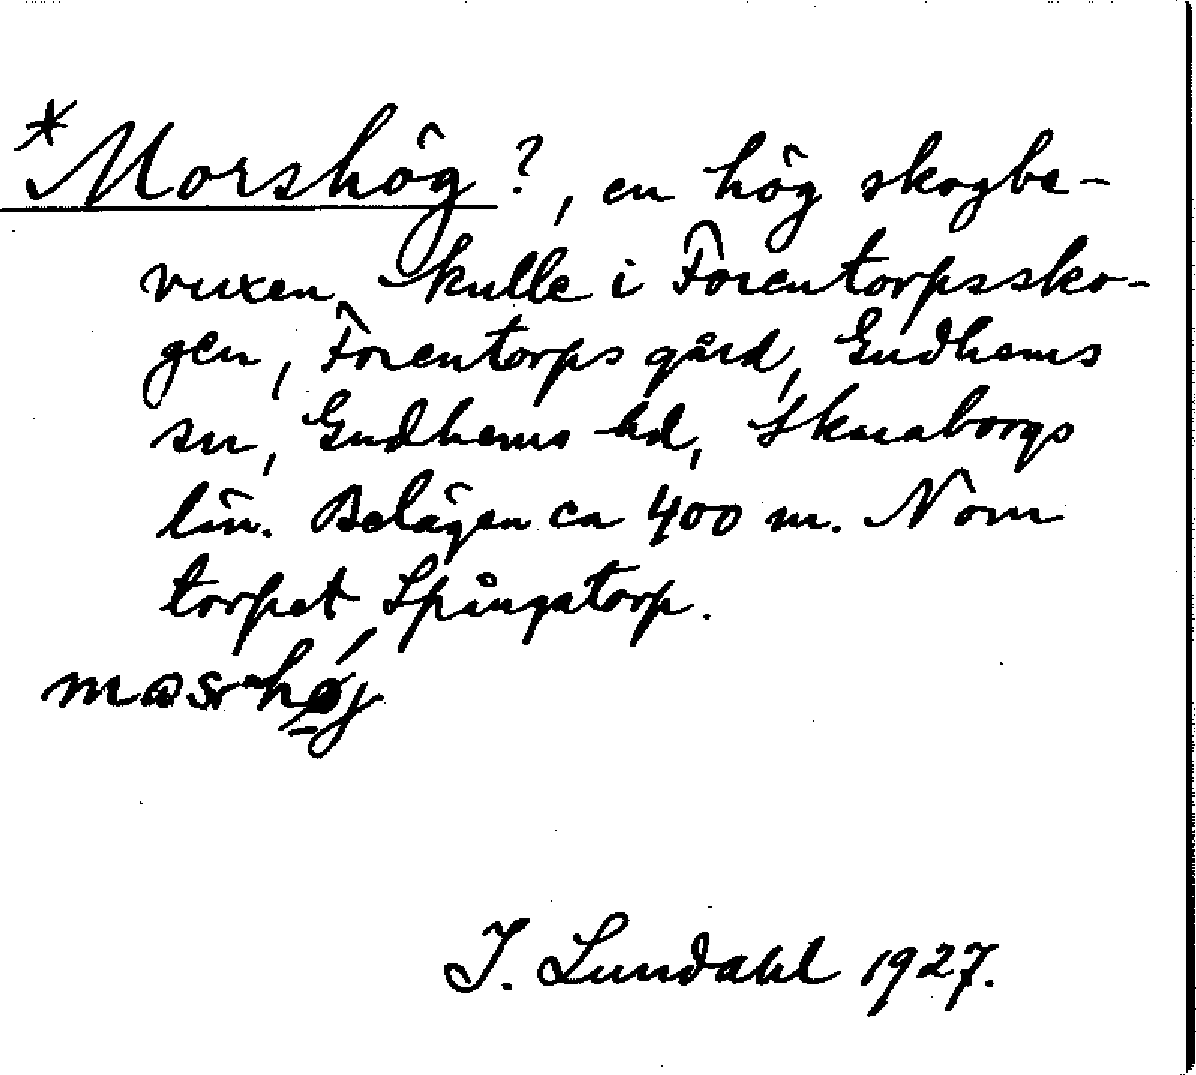 *Morshög ?, en hög skogbe-
vuxen kulle i Forentorpssko-
gen, Forentorps gård, Gudhems
sn, Gudhems hd, Skaraborgs
län. Belägen ca 400 m. N om
torpet Spångatorp.
J. Lundahl 1927.